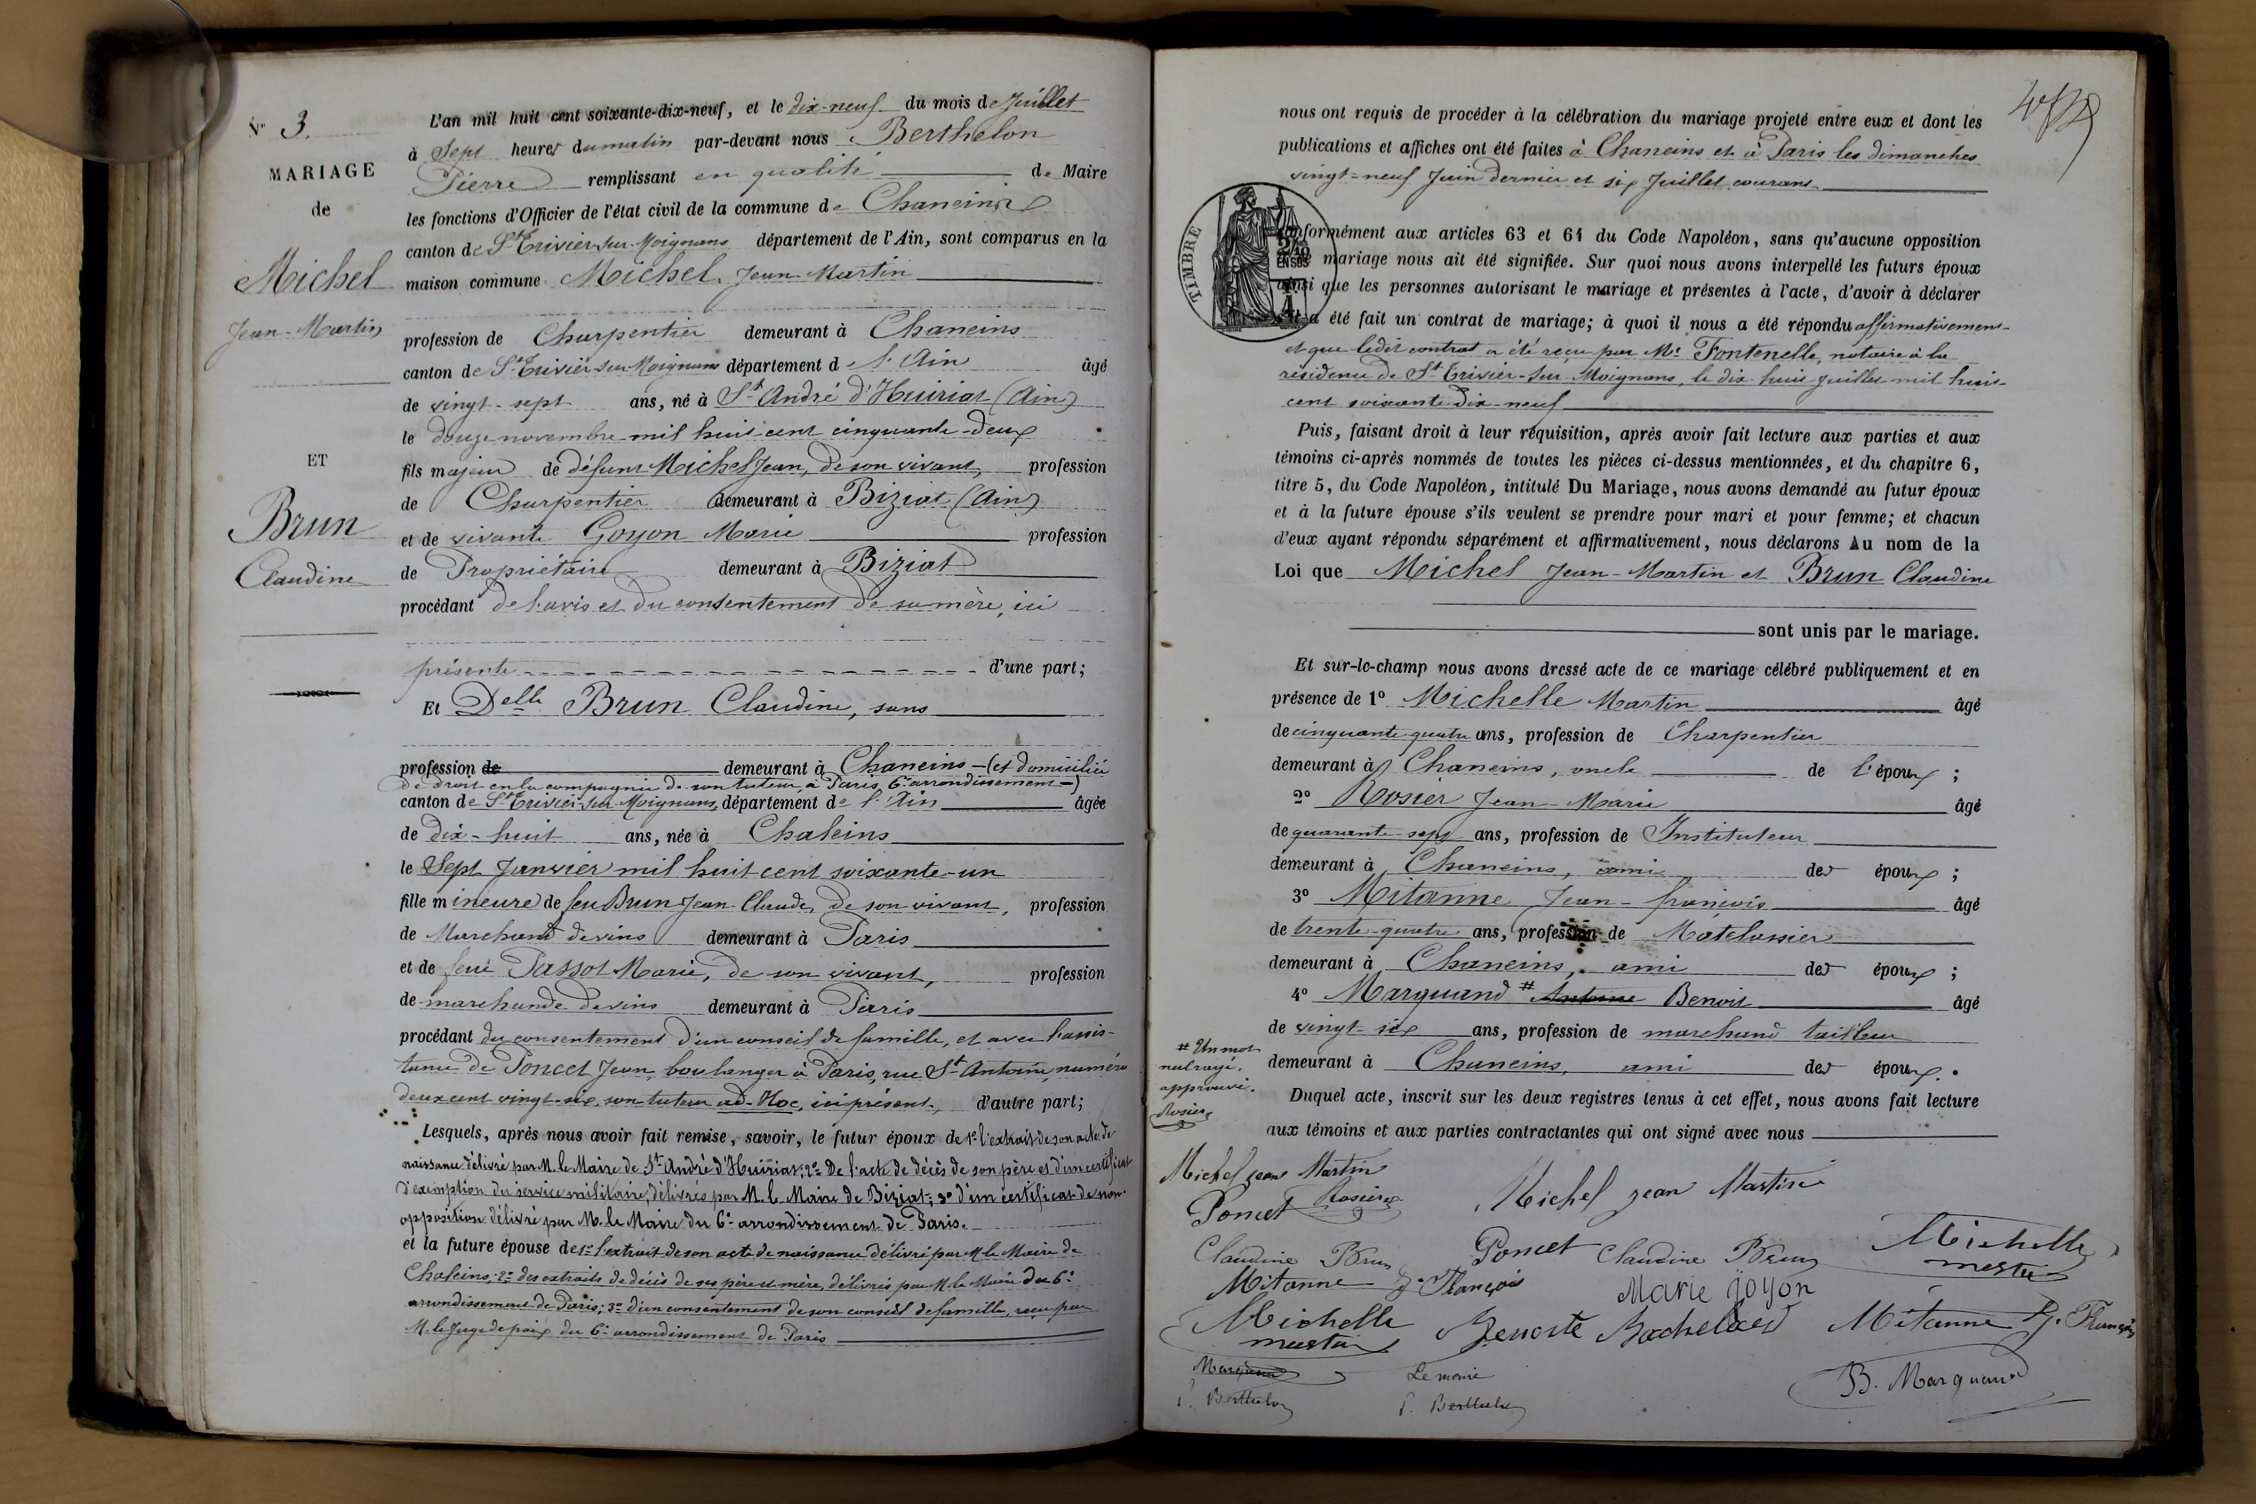 N° 3.
MARIAGE
de
Michel
Jean-Martin
ET
Brun
Claudine
L'an mil huit cent soixante-dix-neuf, et le dix-neuf du mois de Juillet
à Sept heures du matin par-devant nous Berthelon
Pierre remplissant en qualité de Maire
les fonctions d'Officier de l'état civil de la commune de Chaneins
canton de St Trivier-sur-Moignans département de l'Ain, sont comparus en la
maison commune Michel Jean-Martin
profession de Charpentier demeurant à Chaneins
canton de St Trivier sur Moignans département de l'Ain âgé
de vingt-sept ans, né à St André d'Huiriat (Ain)
le douze novembre mil huit cent cinquante-deux
fils majeur de défunt Michel Jean, de son vivant, profession
de Charpentier demeurant à Biziat (Ain)
et de vivante Goyon Marie profession
de Propriétaire demeurant à Biziat
procédant de l'avis et du consentement de sa mère, ici
présente d'une part;
Et Delle Brun Claudine, sans
profession de demeurant à Chaneins - (et domiciliée
de droit en la compagnie de son tuteur, à Paris, 6e arrondissement -)
canton de St Trivier-sur-Moignans, département de l'Ain âgée
de dix-huit ans, née à Chaleins
le Sept Janvier mil huit cent soixante-un
fille mineure de feu Brun Jean-Claude, de son vivant, profession
de Marchand de vins demeurant à Paris
et de feue Passot Marie, de son vivant, profession
de marchande de vins demeurant à Paris
procédant du consentement d'un conseil de famille, et avec l'assis-
tance de Poncet Jean, boulanger à Paris, rue St Antoine, numéro
deux cent vingt-six, son tuteur ad-Hoc, ici présent, d'autre part;
Lesquels, après nous avoir fait remise, savoir, le futur époux de 1° l'extrait de son acte de
naissance délivré par M. le Maire de St André d'Huiriat; 2° De l'acte de décès de son père et d'un certificat
d'exemption du service militaire, délivrés par M. le Maire de Biziat; 3° d'un certificat de non-
opposition délivré par M. le Maire du 6e arrondissement de Paris.
et la future épouse de 1° l'extrait de son acte de naissance délivré par M. le Maire de
Chaleins; 2° des extraits de décès de ses père et mère, délivrés par M. le Maire du 6e
arrondissement de Paris; 3° d'un consentement de son conseil de famille, reçu par
M. le Juge de paix du 6e arrondissement de Paris
nous ont requis de procéder à la célébration du mariage projeté entre eux et dont les
publications et affiches ont été faites à Chaneins et à Paris les dimanches
vingt-neuf Juin dernier et six Juillet courant.
TIMBRE
conformément aux articles 63 et 64 du Code Napoléon, sans qu'aucune opposition
mariage nous ait été signifiée. Sur quoi nous avons interpellé les futurs époux
ainsi que les personnes autorisant le mariage et présentes à l'acte, d'avoir à déclarer
s'il a été fait un contrat de mariage; à quoi il nous a été répondu affirmativement
et que ledit contrat a été reçu par Me Fontenelle, notaire à la
résidence de St Trivier-sur Moignans, le dix-huit juillet mil huit-
cent soixante-dix-neuf
Puis, faisant droit à leur réquisition, après avoir fait lecture aux parties et aux
témoins ci-après nommés de toutes les pièces ci-dessus mentionnées, et du chapitre 6,
titre 5, du Code Napoléon, intitulé Du Mariage, nous avons demandé au futur époux
et à la future épouse s'ils veulent se prendre pour mari et pour femme; et chacun
d'eux ayant répondu séparément et affirmativement, nous déclarons Au nom de la
Loi que Michel Jean-Martin et Brun Claudine
sont unis par le mariage.
Et sur-le-champ nous avons dressé acte de ce mariage célébré publiquement et en
présence de 1° Michelle Martin âgé
de cinquante quatre ans, profession de Charpentier
demeurant à Chaneins, oncle de l'époux;
2° Rosier Jean-Marie âgé
de quarante-sept ans, profession de Instituteur
demeurant à Chaneins, ami des époux;
3° Mitanne Jean-françois âgé
de trente-quatre ans, profession de Matelassier
demeurant à Chaneins, ami des époux;
4° Marquand # Antoine Benoit âgé
de vingt-six ans, profession de marchand tailleur
# Un mot
nul rayé,
approuvé.
Rosier
demeurant à Chaneins, ami des époux.
Duquel acte, inscrit sur les deux registres tenus à cet effet, nous avons fait lecture
aux témoins et aux parties contractantes qui ont signé avec nous
Michel jean Martin
Michel jean Martin
Poncet Rosier
Claudine Brun
Poncet Claudine Brun
Michelle
martin
Mitanne J. François
Marie goyon
Michelle
martin
Benoite Bachelard
Mitanne J. François
Marquand
Le maire
B. Marquand
P. Berthelon
P. Berthelon